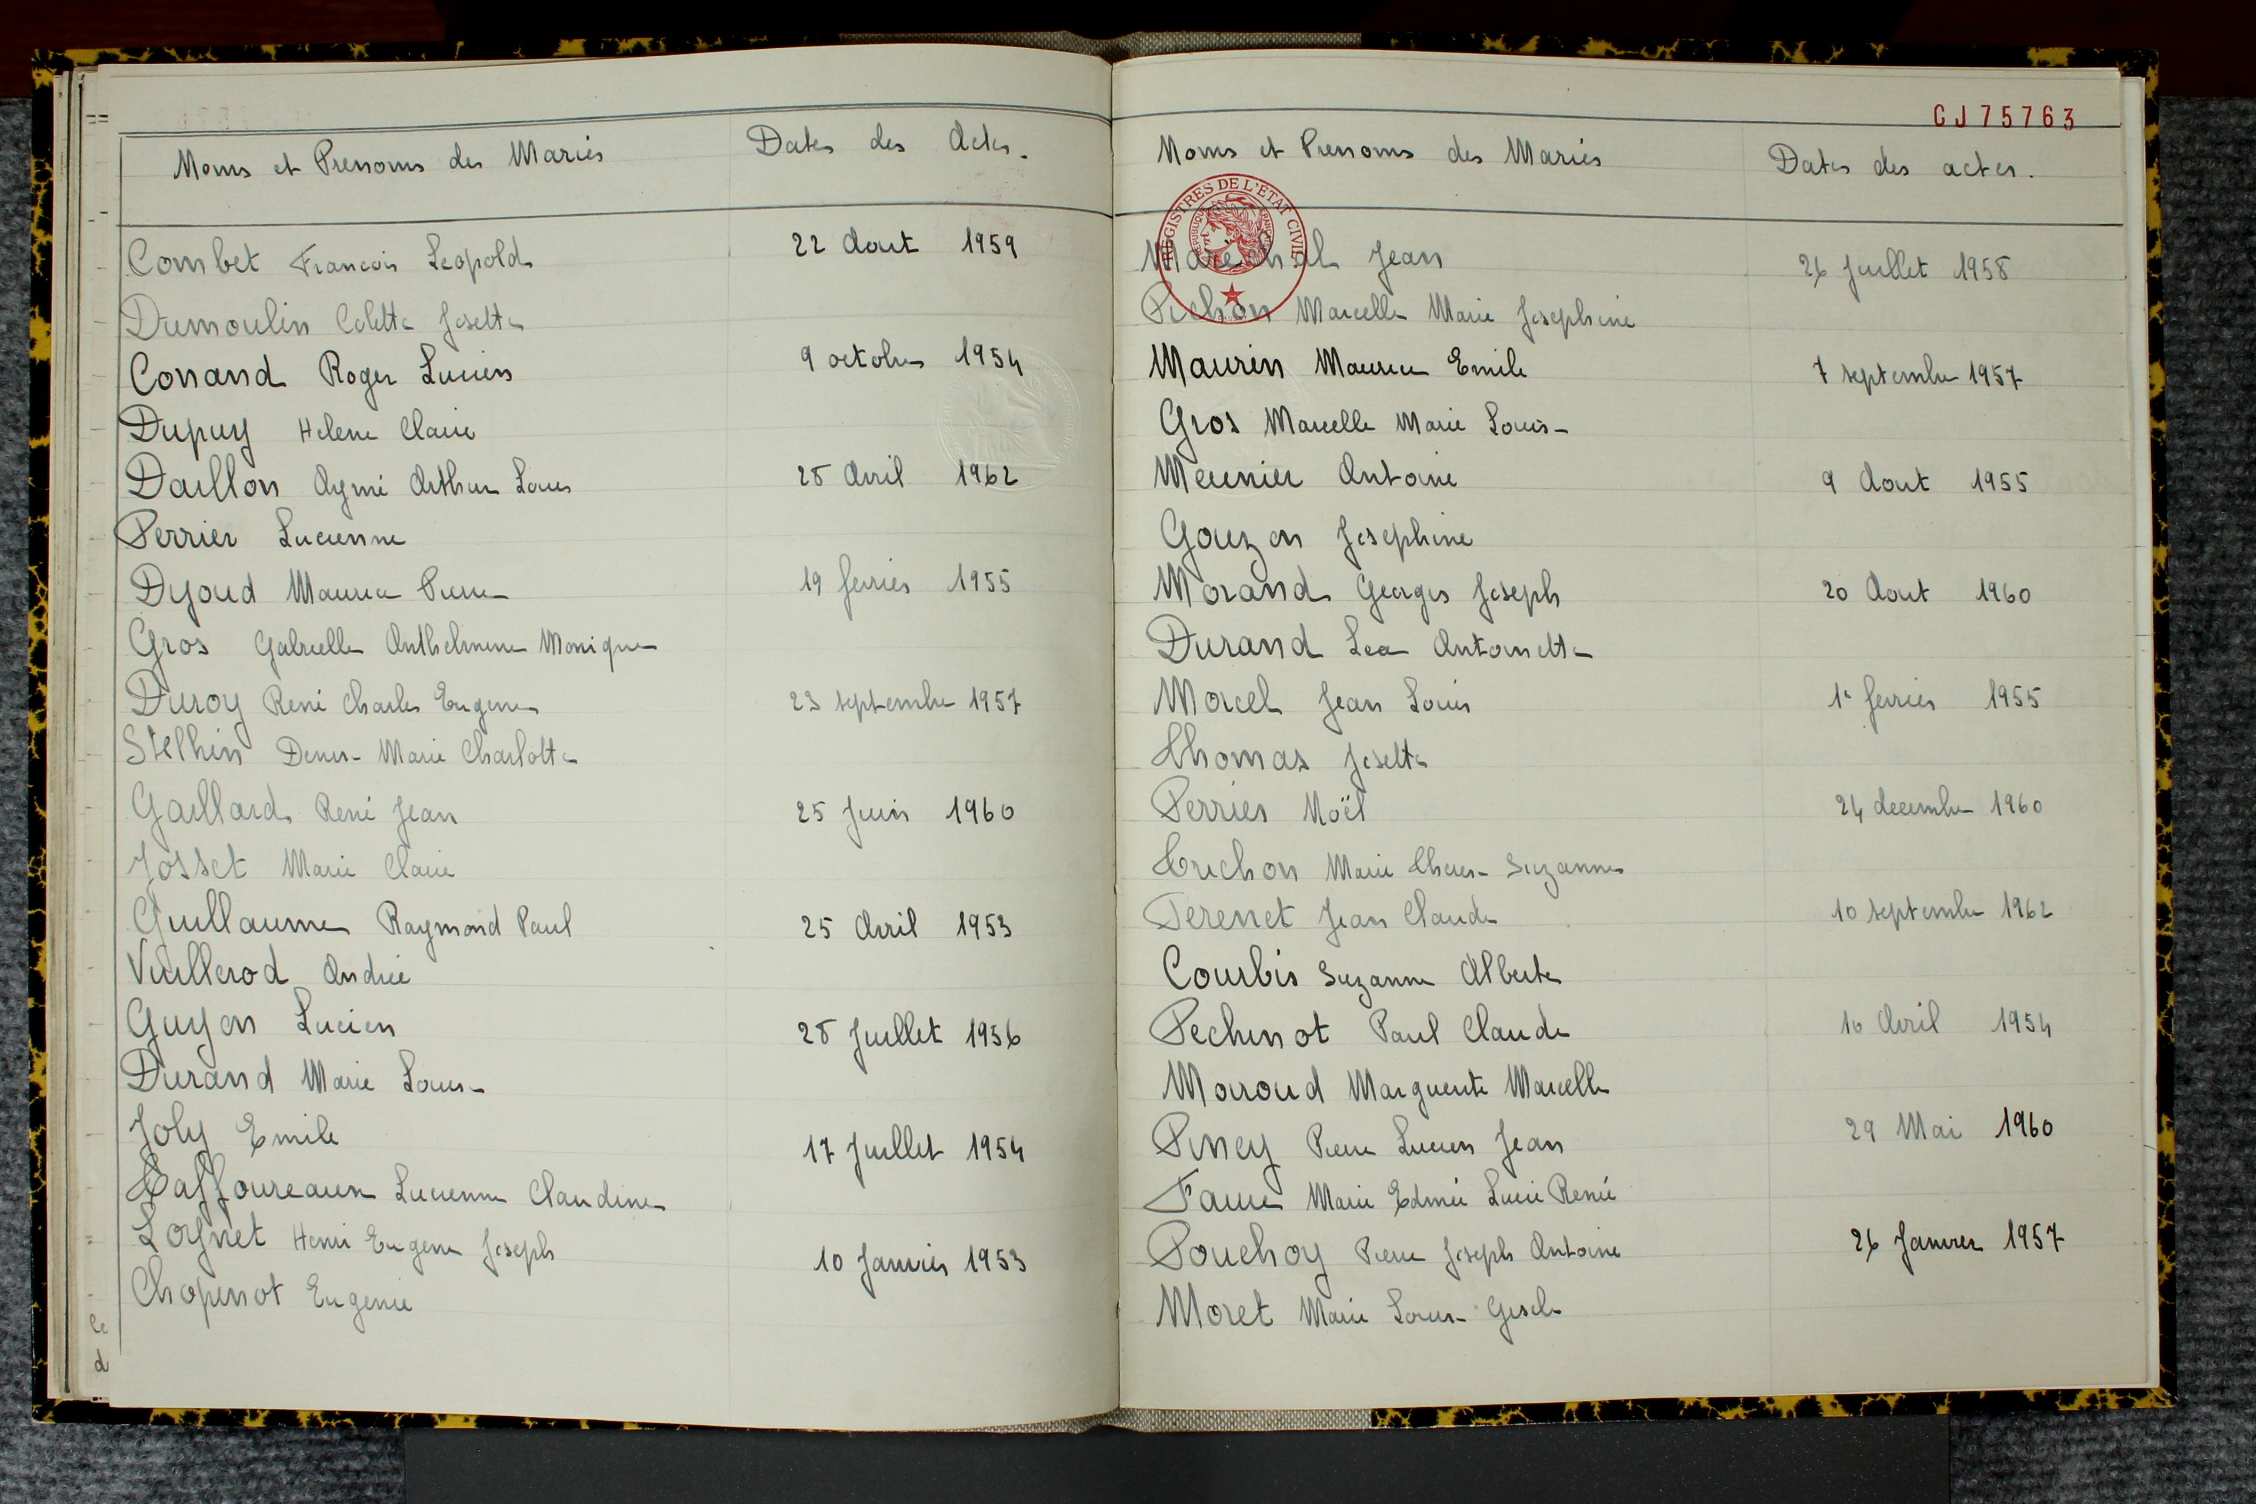 Noms et Prenoms des Mariés
Dates des Actes.
Combet Francois Leopold
22 Aout 1959
Dumoulin Colette Josette
Conand Roger Lucien
9 octobre 1954
Dupuy Helene Claire
Daillon Aymé Arthur Louis
28 Avril 1962
Perrier Lucienne
Dyoud Maurice Pierre
19 fevrier 1955
Gros Gabrielle Anthelmene Monique
Duroy René Charles Eugene
23 septembre 1957
Stelhin Denise Marie Charlotte
Gaillard René Jean
25 Juin 1960
Josset Marie Claire
Guillaume Raymond Paul
25 Avril 1953
Vuillerod Andrée
Guyon Lucien
28 Juillet 1956
Durand Marie Louise
Joly Emile
17 Juillet 1954
Lucienne Claudine
Loynet Henri Eugene Joseph
10 Janvier 1953
Chopinot Eugenie
le
d
CJ75763
Noms et Prenoms des Mariés
Dates des actes.
REGISTRES DE L'ETAT CIVIL
Marechal Jean
26 Juillet 1958
Pichon Marcelle Marie Josephine
Maurin Maurice Emile
7 septembre 1957
Gros Marcelle Marie Louise
Meunier Antoine
9 Aout 1955
Gouzon Josephine
Morand Georges Joseph
20 Aout 1960
Durand Lea Antoinette
Morel Jean Louis
1e fevrier 1955
Thomas Josette
Perrier Noël
24 decembre 1960
Truchon Marie Therese Suzanne
Perenet Jean Claude
10 septembre 1962
Courbis Suzanne Alberte
Pechinot Paul Claude
10 Avril 1954
Moiroud Marguerite Marcelle
Piney Pierre Lucien Jean
29 Mai 1960
Faure Marie Edmée Lucie Renée
Pouchoy Pierre Joseph Antoine
26 Janvier 1957
Moret Marie Louise Gisele